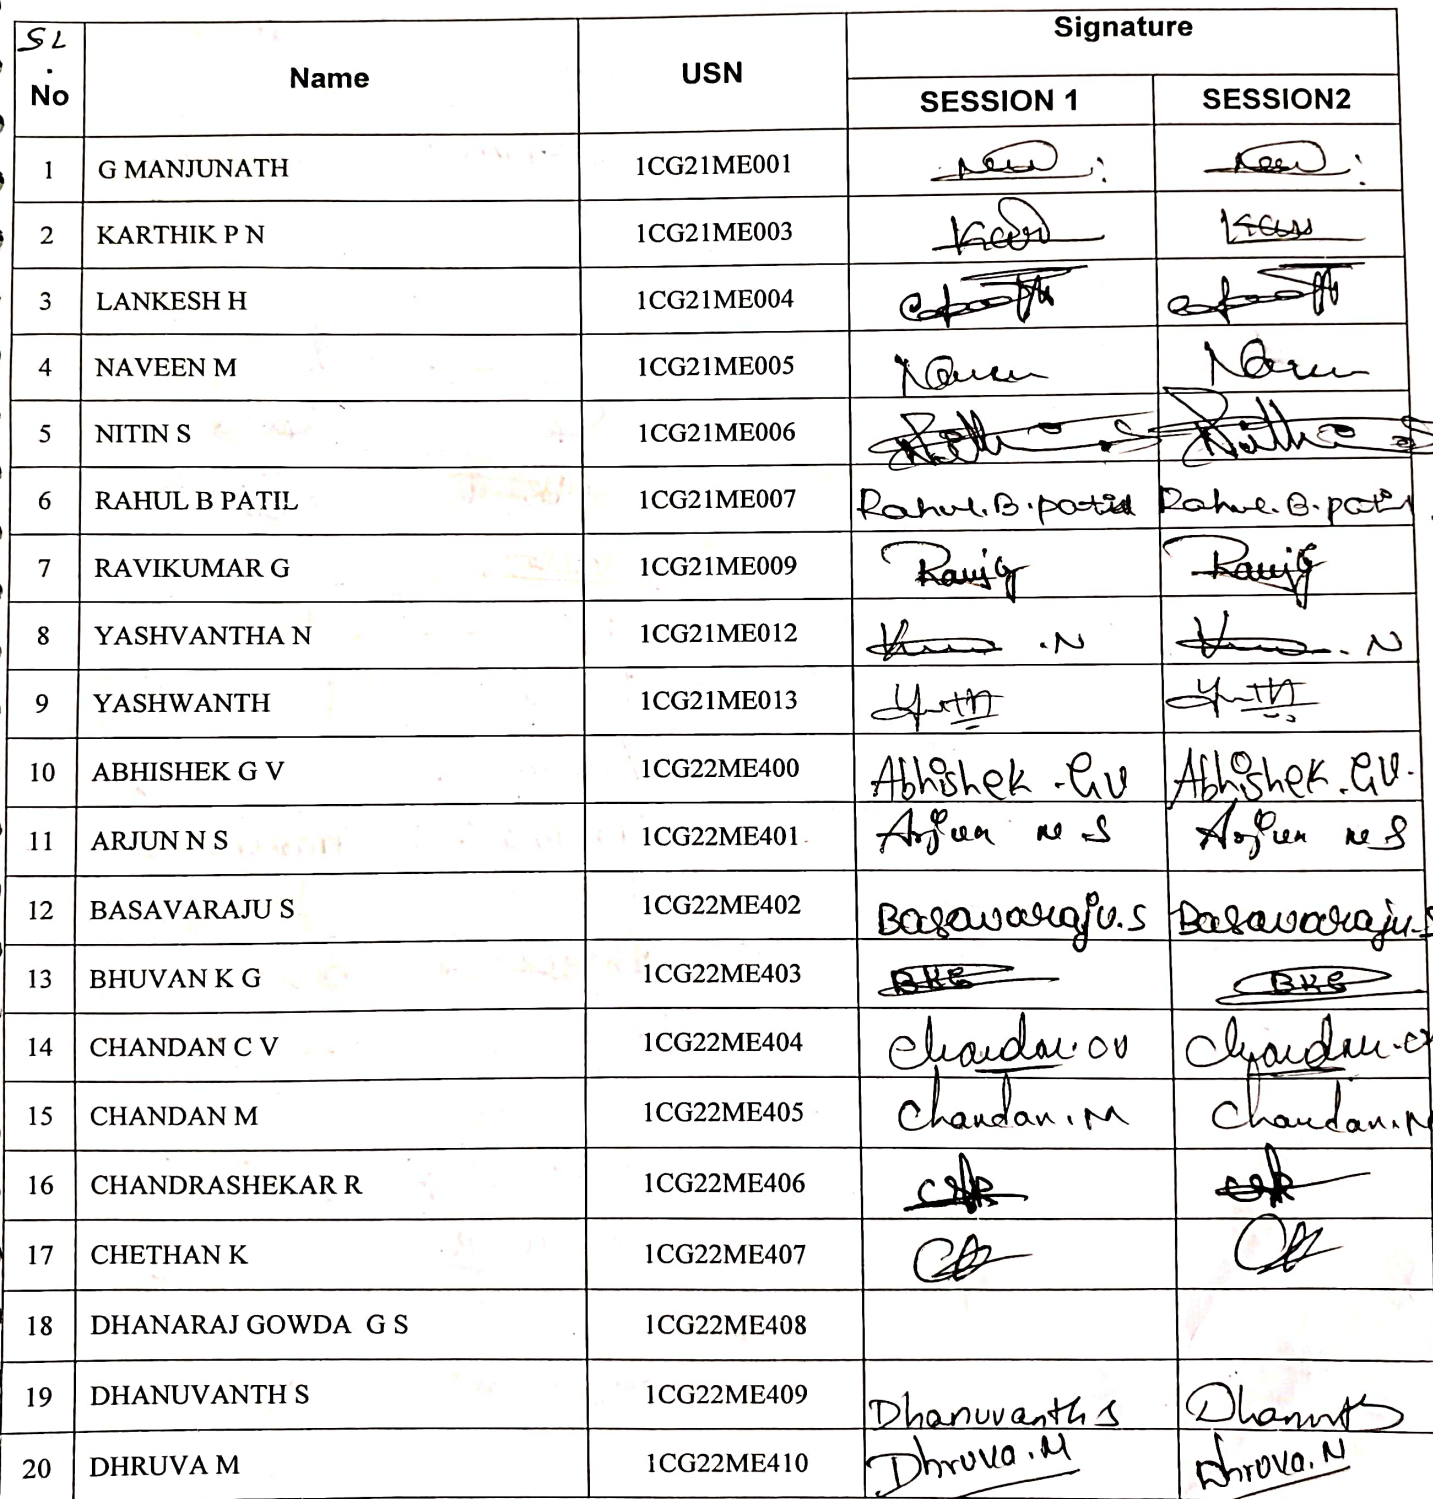 SL . No Name USN Signature
SESSION 1 SESSION2
1 G MANJUNATH 1CG21ME001
2 KARTHIK P N 1CG21ME003
3 LANKESH H 1CG21ME004
4 NAVEEN M 1CG21ME005
5 NITIN S 1CG21ME006
6 RAHUL B PATIL 1CG21ME007 Rahul.B.patil Rahul.B.patil
7 RAVIKUMAR G 1CG21ME009 RaviG RaviG
8 YASHVANTHA N 1CG21ME012 .N .N
9 YASHWANTH 1CG21ME013
10 ABHISHEK G V 1CG22ME400 Abhishek.GV Abhishek.GV.
11 ARJUN N S 1CG22ME401 Arjun N S Arjun N S
12 BASAVARAJU S 1CG22ME402 Basavaraju.S Basavaraju.S
13 BHUVAN K G 1CG22ME403 BKG BKG
14 CHANDAN C V 1CG22ME404 Chandan.CV Chandan.CV
15 CHANDAN M 1CG22ME405 Chandan.M Chandan.M
16 CHANDRASHEKAR R 1CG22ME406
17 CHETHAN K 1CG22ME407
18 DHANARAJ GOWDA G S 1CG22ME408
19 DHANUVANTH S 1CG22ME409 Dhanuvanth S
20 DHRUVA M 1CG22ME410 Dhruva.M Dhruva.M